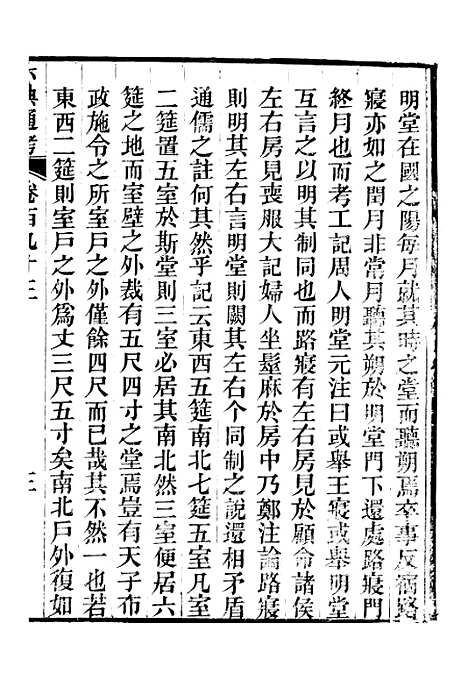 明堂在國之陽每月就其時之堂而聽朔焉卒事反宿路
寢亦如之閏月非常月聽其朔於明堂門下還處路寢門
終月也而考工記周人明堂元注曰或舉王寢或舉明堂
互言之以明其制同也而路寢有左右房見於顧命諸侯
左右房見喪服大記婦人坐髽麻於房中乃鄭注論路寢
則明其左右言明堂則闕其左右个同制之說還相矛盾
通儒之註何其然乎記云東西五筵南北七筵五室凡室
二筵置五室於斯堂則三室必居其南北然三室便居六
筵之地而室壁之外裁有五尺四寸之堂焉豈有天子布
政施令之所室戶之外僅餘四尺而已哉其不然一也若
東西二筵則室戶之外爲丈三尺五寸矣南北戶外復如
六典通考
卷百九十三
三